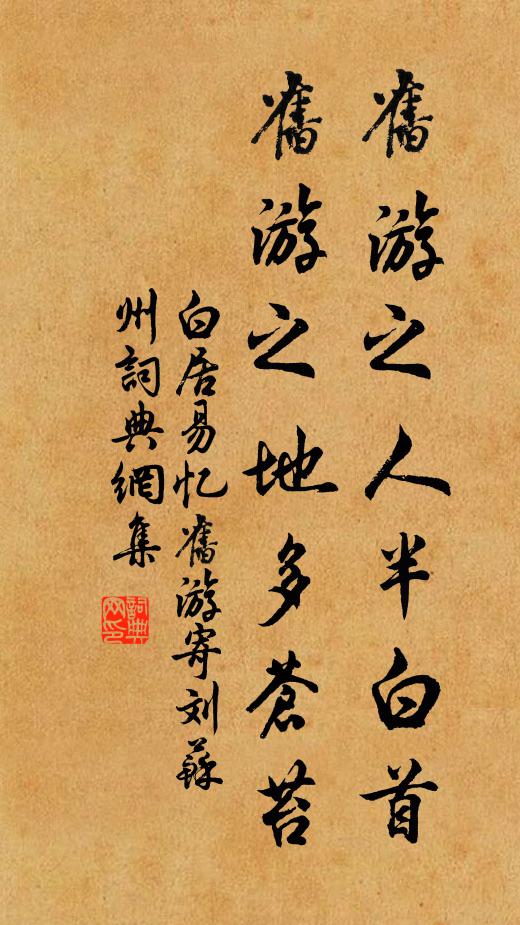 舊游之人半白首
舊游之地多蒼苔
白居易忆舊游寄刘蘇
州詞典網集
詞典
网印